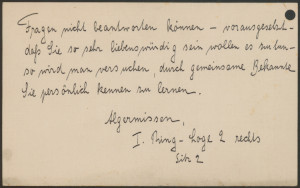 Fragen nicht beantworten können – vorausgesetzt
daß Sie so sehr liebenswürdig sein wollen es zu tun –
so wird man versuchen, durch gemeinsame Bekannte
Sie persönlich kennen zu lernen.
Algermissen,
I. Ring-Loge 2 rechts
Sitz 2